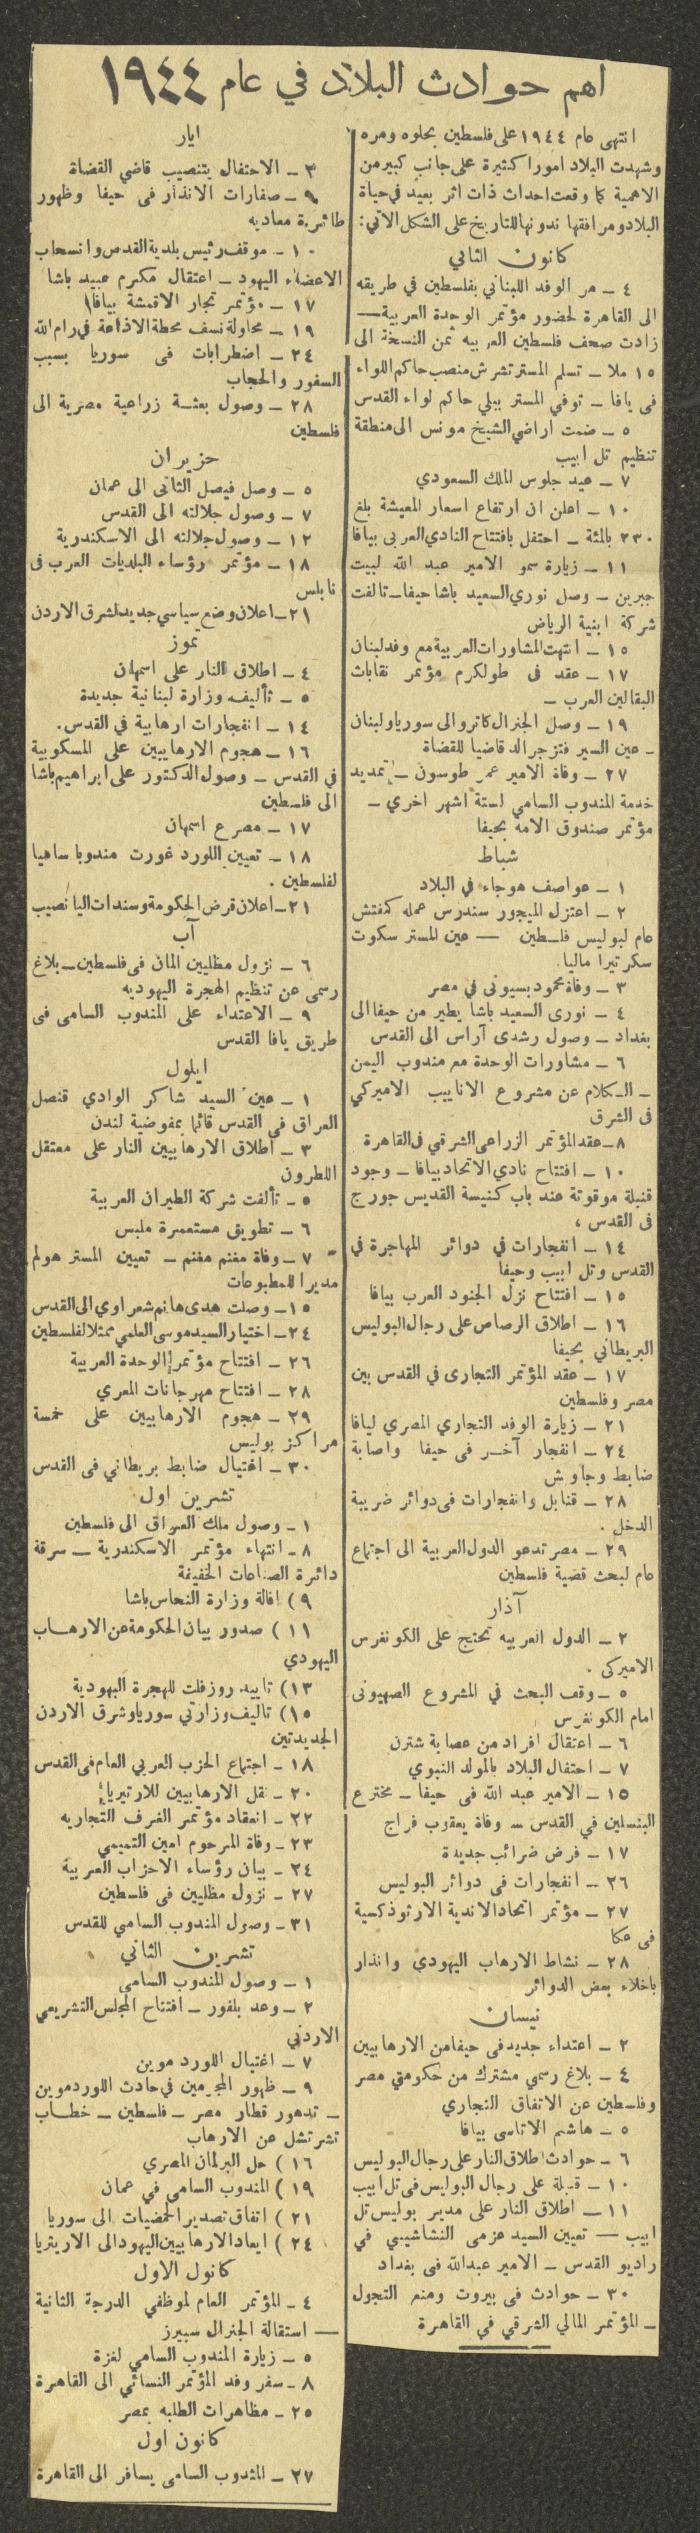 اهم حوادث البلاد في عام ١٩٤٤
انتهى عام ١٩٤٤ على فلسطين بحلوه ومره
وشهدت البلاد امورا كثيرة على جانب كبير من
الاهمية كما وقعت احداث ذات اثر بعيد في حياة
البلاد ومرافقها ندونها للتاريخ على الشكل الآتي:
كانون الثاني
٤ ـ مر الوفد اللبناني بفلسطين في طريقه
الى القاهرة لحضور مؤتمر الوحدة العربية ـ
زادت صحف فلسطين العربيه ثمن النسخة الى
١٥ ملا ـ تسلم المستر تشرش منصب حاكم اللواء
فى يافا ـ توفي المستر بيلي حاكم لواء القدس
٥ ـ ضمت اراضي الشيخ مونس الى منطقة
تنظيم تل ابيب
٧ ـ عيد جلوس الملك السعودي
١٠ ـ اعلن ان ارتفاع اسعار المعيشة بلغ
٢٣٠ بالمئة ـ احتفل بافتتاح النادي العربى بيافا
١١ ـ زيارة سمو الامير عبد الله لبيت
جبرين ـ وصل نوري السعيد باشا حيفا ـ تالفت
شركة ابنية الرياض
١٥ ـ انتهت المشاورات العربية مع وفد لبنان
١٧ ـ عقد فى طولكرم مؤتمر نقابات
البقالين العرب ـ
١٩ ـ وصل الجنرال كاترو الى سوريا ولبنان
ـ عين السير فتزجرالد قاضيا للقضاة
٢٧ ـ وفاة الامير عمر طوسون ـ تمديد
خدمة المندوب السامي لستة اشهر اخرى ـ
مؤتمر صندوق الامة بحيفا
شباط
١ ـ عواصف هوجاء في البلاد
٢ ـ اعتزل الميجور سندرس عمله كمفتش
عام لبوليس فلسطين ـ عين المستر سكوت
سكرتيرا ماليا
٣ ـ وفاة محمود بسيونى في مصر
٤ ـ نورى السعيد باشا يطير من حيفا الى
بغداد ـ وصول رشدى آراس الى القدس
٦ ـ مشاورات الوحدة مع مندوب اليمن
ـ الكلام عن مشروع الانابيب الاميركي
فى الشرق
٨ ـ عقد المؤتمر الزراعى الشرقي فى القاهرة
١٠ ـ افتتاح نادي الاتحاد بيافا ـ وجود
قنبلة موقوتة عند باب كنيسة القديس جورج
فى القدس ،
١٤ ـ انفجارات في دوائر المهاجرة في
القدس وتل ابيب وحيفا
١٥ ـ افتتاح نزل الجنود العرب بيافا
١٦ ـ اطلاق الرصاص على رجال البوليس
البريطاني بحيفا
١٧ ـ عقد المؤتمر التجارى في القدس بين
مصر وفلسطين
٢١ ـ زيارة الوفد التجاري المصري ليافا
٢٤ ـ انفجار آخر فى حيفا واصابة
ضابط وجاوش
٢٨ ـ قنابل وانفجارات فى دوائر ضريبة
الدخل .
٢٩ ـ مصر تدعو الدول العربية الى اجتماع
عام لبحث قضية فلسطين
آذار
٢ ـ الدول العربيه تحتج على الكونغرس
الاميركى .
٥ ـ وقف البحث في المشروع الصهيونى
امام الكونغرس
٦ ـ اعتقال افراد من عصابة شترن
٧ ـ احتفال البلاد بالمولد النبوي
١٥ ـ الامير عبد الله فى حيفا ـ مخترع
البنسلين في القدس ـ وفاة يعقوب فراج
١٧ ـ فرض ضرائب جديدة
٢٦ ـ انفجارات فى دوائر البوليس
٢٧ ـ مؤتمر اتحاد الاندية الارثوذكسية
فى عكا
٢٨ ـ نشاط الارهاب اليهودي وانذار
باخلاء بعض الدوائر
نيسان
٢ ـ اعتداء جديد فى حيفا من الارهابيين
٤ ـ بلاغ رسمي مشترك من حكومتي مصر
وفلسطين عن الاتفاق التجاري
٥ ـ هاشم الاتاسى بيافا
٦ ـ حوادث اطلاق النار على رجال البوليس
١٠ ـ قنبلة على رجال البوليس فى تل ابيب
١١ ـ اطلاق النار على مدير بوليس تل
ابيب ـ تعيين السيد عزمى النشاشيبي في
راديو القدس ـ الامير عبدالله فى بغداد
٣٠ ـ حوادث فى بيروت ومنع التجول
ـ المؤتمر المالي الشرقي في القاهرة
ايار
٣ ـ الاحتفال بتنصيب قاضي القضاة
٩ ـ صفارات الانذار فى حيفا وظهور
طائرة معاديه
١٠ ـ موقف رئيس بلدية القدس وانسحاب
الاعضاء اليهود ـ اعتقال مكرم عبيد باشا
١٧ ـ مؤتمر تجار الاقمشة بيافا
١٩ ـ محاولة نسف محطة الاذاعة في رام الله
٢٤ ـ اضطرابات فى سوريا بسبب
السفور والحجاب
٢٨ ـ وصول بعثة زراعية مصرية الى
فلسطين
حزيران
٥ ـ وصل فيصل الثانى الى عمان
٧ ـ وصول جلالته الى القدس
١٢ ـ وصول جلالته الى الاسكندرية
١٨ ـ مؤتمر رؤساء البلديات العرب فى
نابلس
٢١ ـ اعلان وضع سياسي جديد لشرق الاردن
تموز
٤ ـ اطلاق النار على اسمهان
٥ ـ تأليف وزارة لبنانية جديدة
١٤ ـ انفجارات ارهابية في القدس.
١٦ ـ هجوم الارهابيين على المسكوبية
في القدس ـ وصول الدكتور على ابراهيم باشا
الى فلسطين
١٧ ـ مصرع اسمهان
١٨ ـ تعيين اللورد غورت مندوبا ساميا
لفلسطين .
٢١ ـ اعلان قرض الحكومة وسندات اليانصيب
آب
٦ ـ نزول مظليين المان فى فلسطين ـ بلاغ
رسمى عن تنظيم الهجرة اليهوديه
٩ ـ الاعتداء على المندوب السامى فى
طريق يافا القدس
ايلول
١ ـ عين السيد شاكر الوادي قنصل
العراق فى القدس قائما بمفوضية لندن
٣ ـ اطلاق الارهابيين النار على معتقل
اللطرون
٥ ـ تألفت شركة الطيران العربية
٦ ـ تطويق مستعمرة ملبس
٧ ـ وفاة مغنم مغنم ـ تعيين المستر هولم
مديرا للمطبوعات
١٥ ـ وصلت هدى هانم شعراوي الى القدس
٢٤ ـ اختيار السيد موسى العلمي ممثلا لفلسطين
٢٦ ـ افتتاح مؤتمر الوحدة العربية
٢٨ ـ افتتاح مهرجانات المعري
٢٩ ـ هجوم الارهابيين على خمسة
مراكز بوليس
٣٠ ـ اغتيال ضابط بريطاني فى القدس
تشرين اول
١ ـ وصول ملك العراق الى فلسطين
٨ ـ انتهاء مؤتمر الاسكندرية ـ سرقة
دائرة الصناعات الخفيفة
٩ ) اقالة وزارة النحاس باشا
١١ ) صدور بيان الحكومة عن الارهاب
اليهودي
١٣) تاييد روزفلت للهجرة اليهودية
١٥) تاليف وزارتي سوريا وشرق الاردن
الجديدتين
١٨ ـ اجتماع الحزب العربي العام فى القدس
٢٠ ـ نقل الارهابيين للارتيريا
٢٢ ـ انعقاد مؤتمر الغرف التجاريه
٢٣ ـ وفاة المرحوم امين التميمي
٢٤ ـ بيان رؤساء الاحزاب العربية
٢٧ ـ نزول مظليين فى فلسطين
٣١ ـ وصول المندوب السامي للقدس
تشرين الثاني
١ ـ وصول المندوب السامى
٢ ـ وعد بلفور ـ افتتاح المجلس التشريعي
الاردني
٧ ـ اغتيال اللورد موين
٩ ـ ظهور المجرمين في حادث اللورد موين
ـ تدهور قطار مصر ـ فلسطين ـ خطاب
تشرتشل عن الارهاب
١٦ ) حل البرلمان المصري
١٩ ) المندوب السامى في عمان
٢١ ) اتفاق تصدير الحمضيات الى سوريا
٢٤ ) ابعاد الارهابيين اليهود الى الاريتريا
كانون الاول
٤ ـ المؤتمر العام لموظفي الدرجة الثانية
ـ استقالة الجنرال سبيرز
٥ ـ زيارة المندوب السامي لغزة
٨ ـ سفر وفد المؤتمر النسائي الى القاهرة
٢٥ ـ مظاهرات الطلبه بمصر
كانون اول
٢٧ ـ المندوب السامى يسافر الى القاهرة